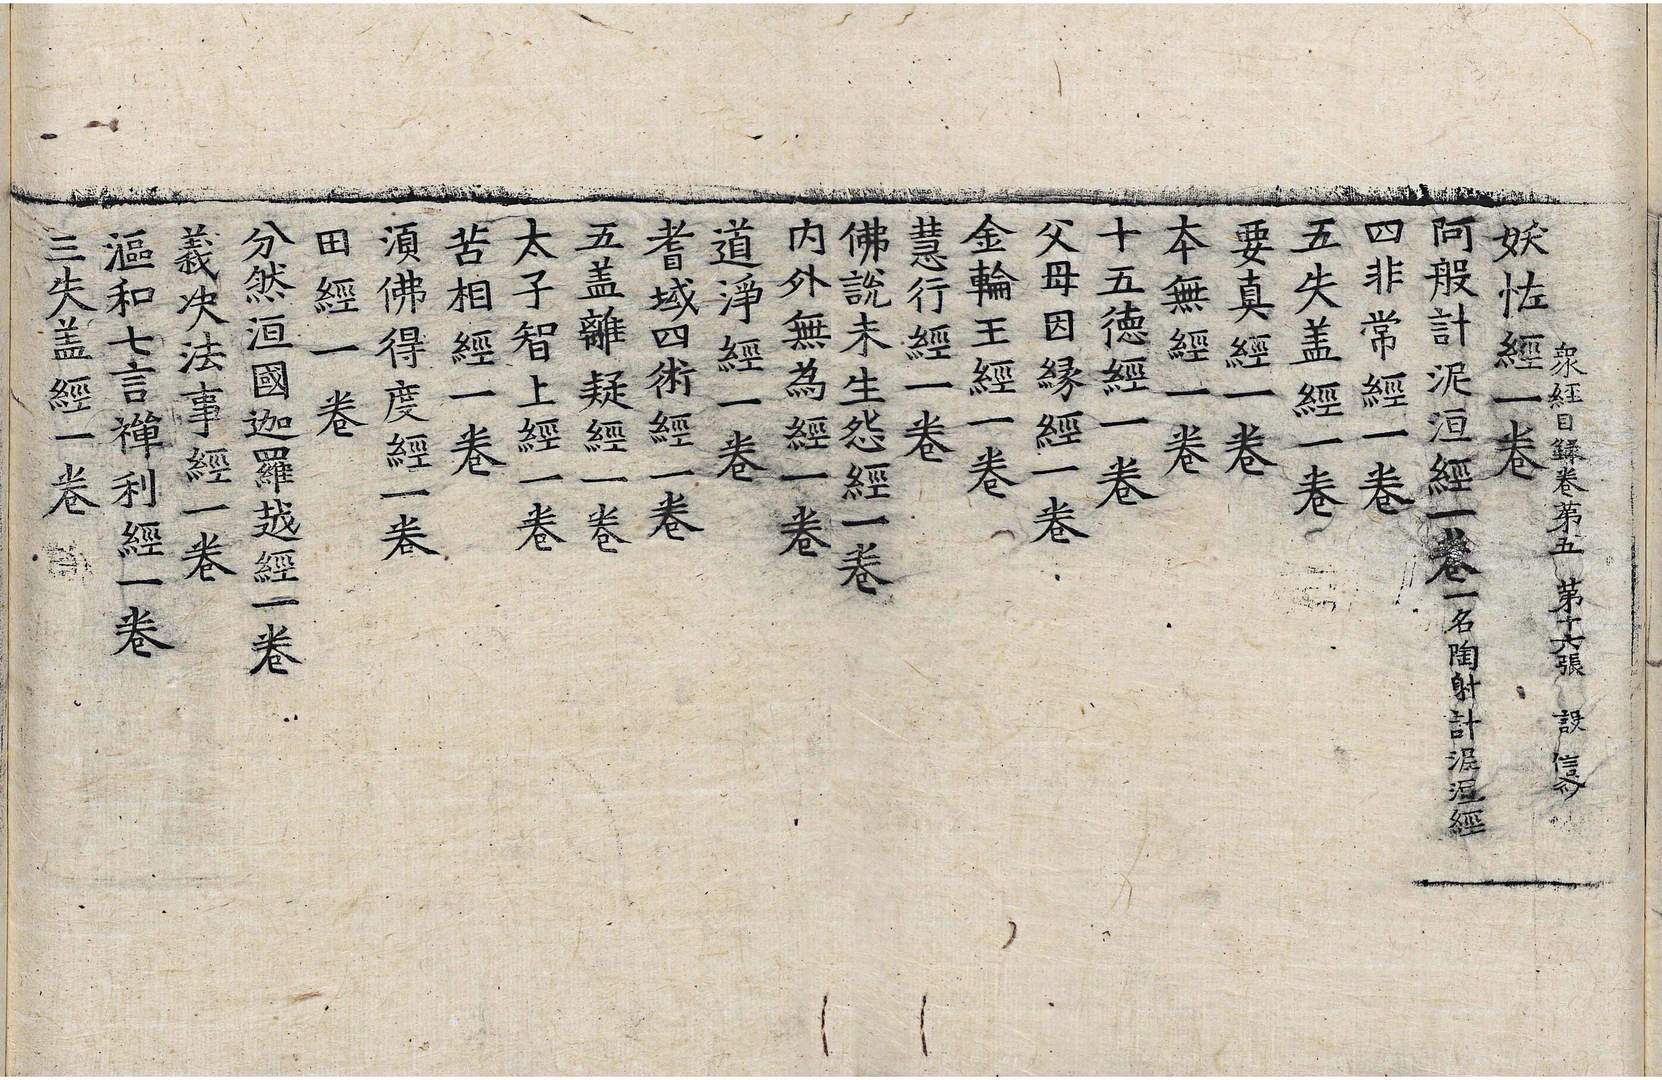 衆經目録卷第五 第十六張 設
妖怪經一卷
阿般計泥洹經一卷一名陶射計泥洹經
四非常經一卷
五失盖經一卷
要真經一卷
本無經一卷
十五德經一卷
父母因縁經一卷
金輪王經一卷
慧行經一卷
佛說未生怨經一卷
内外無為經一卷
道淨經一卷
耆域四術經一卷
五盖離疑經一卷
太子智上經一卷
苦相經一卷
湏佛得度經一卷
田經一卷
分然洹國迦羅越經一卷
義决法事經一卷
漚和七言禅利經一卷
三失盖經一卷